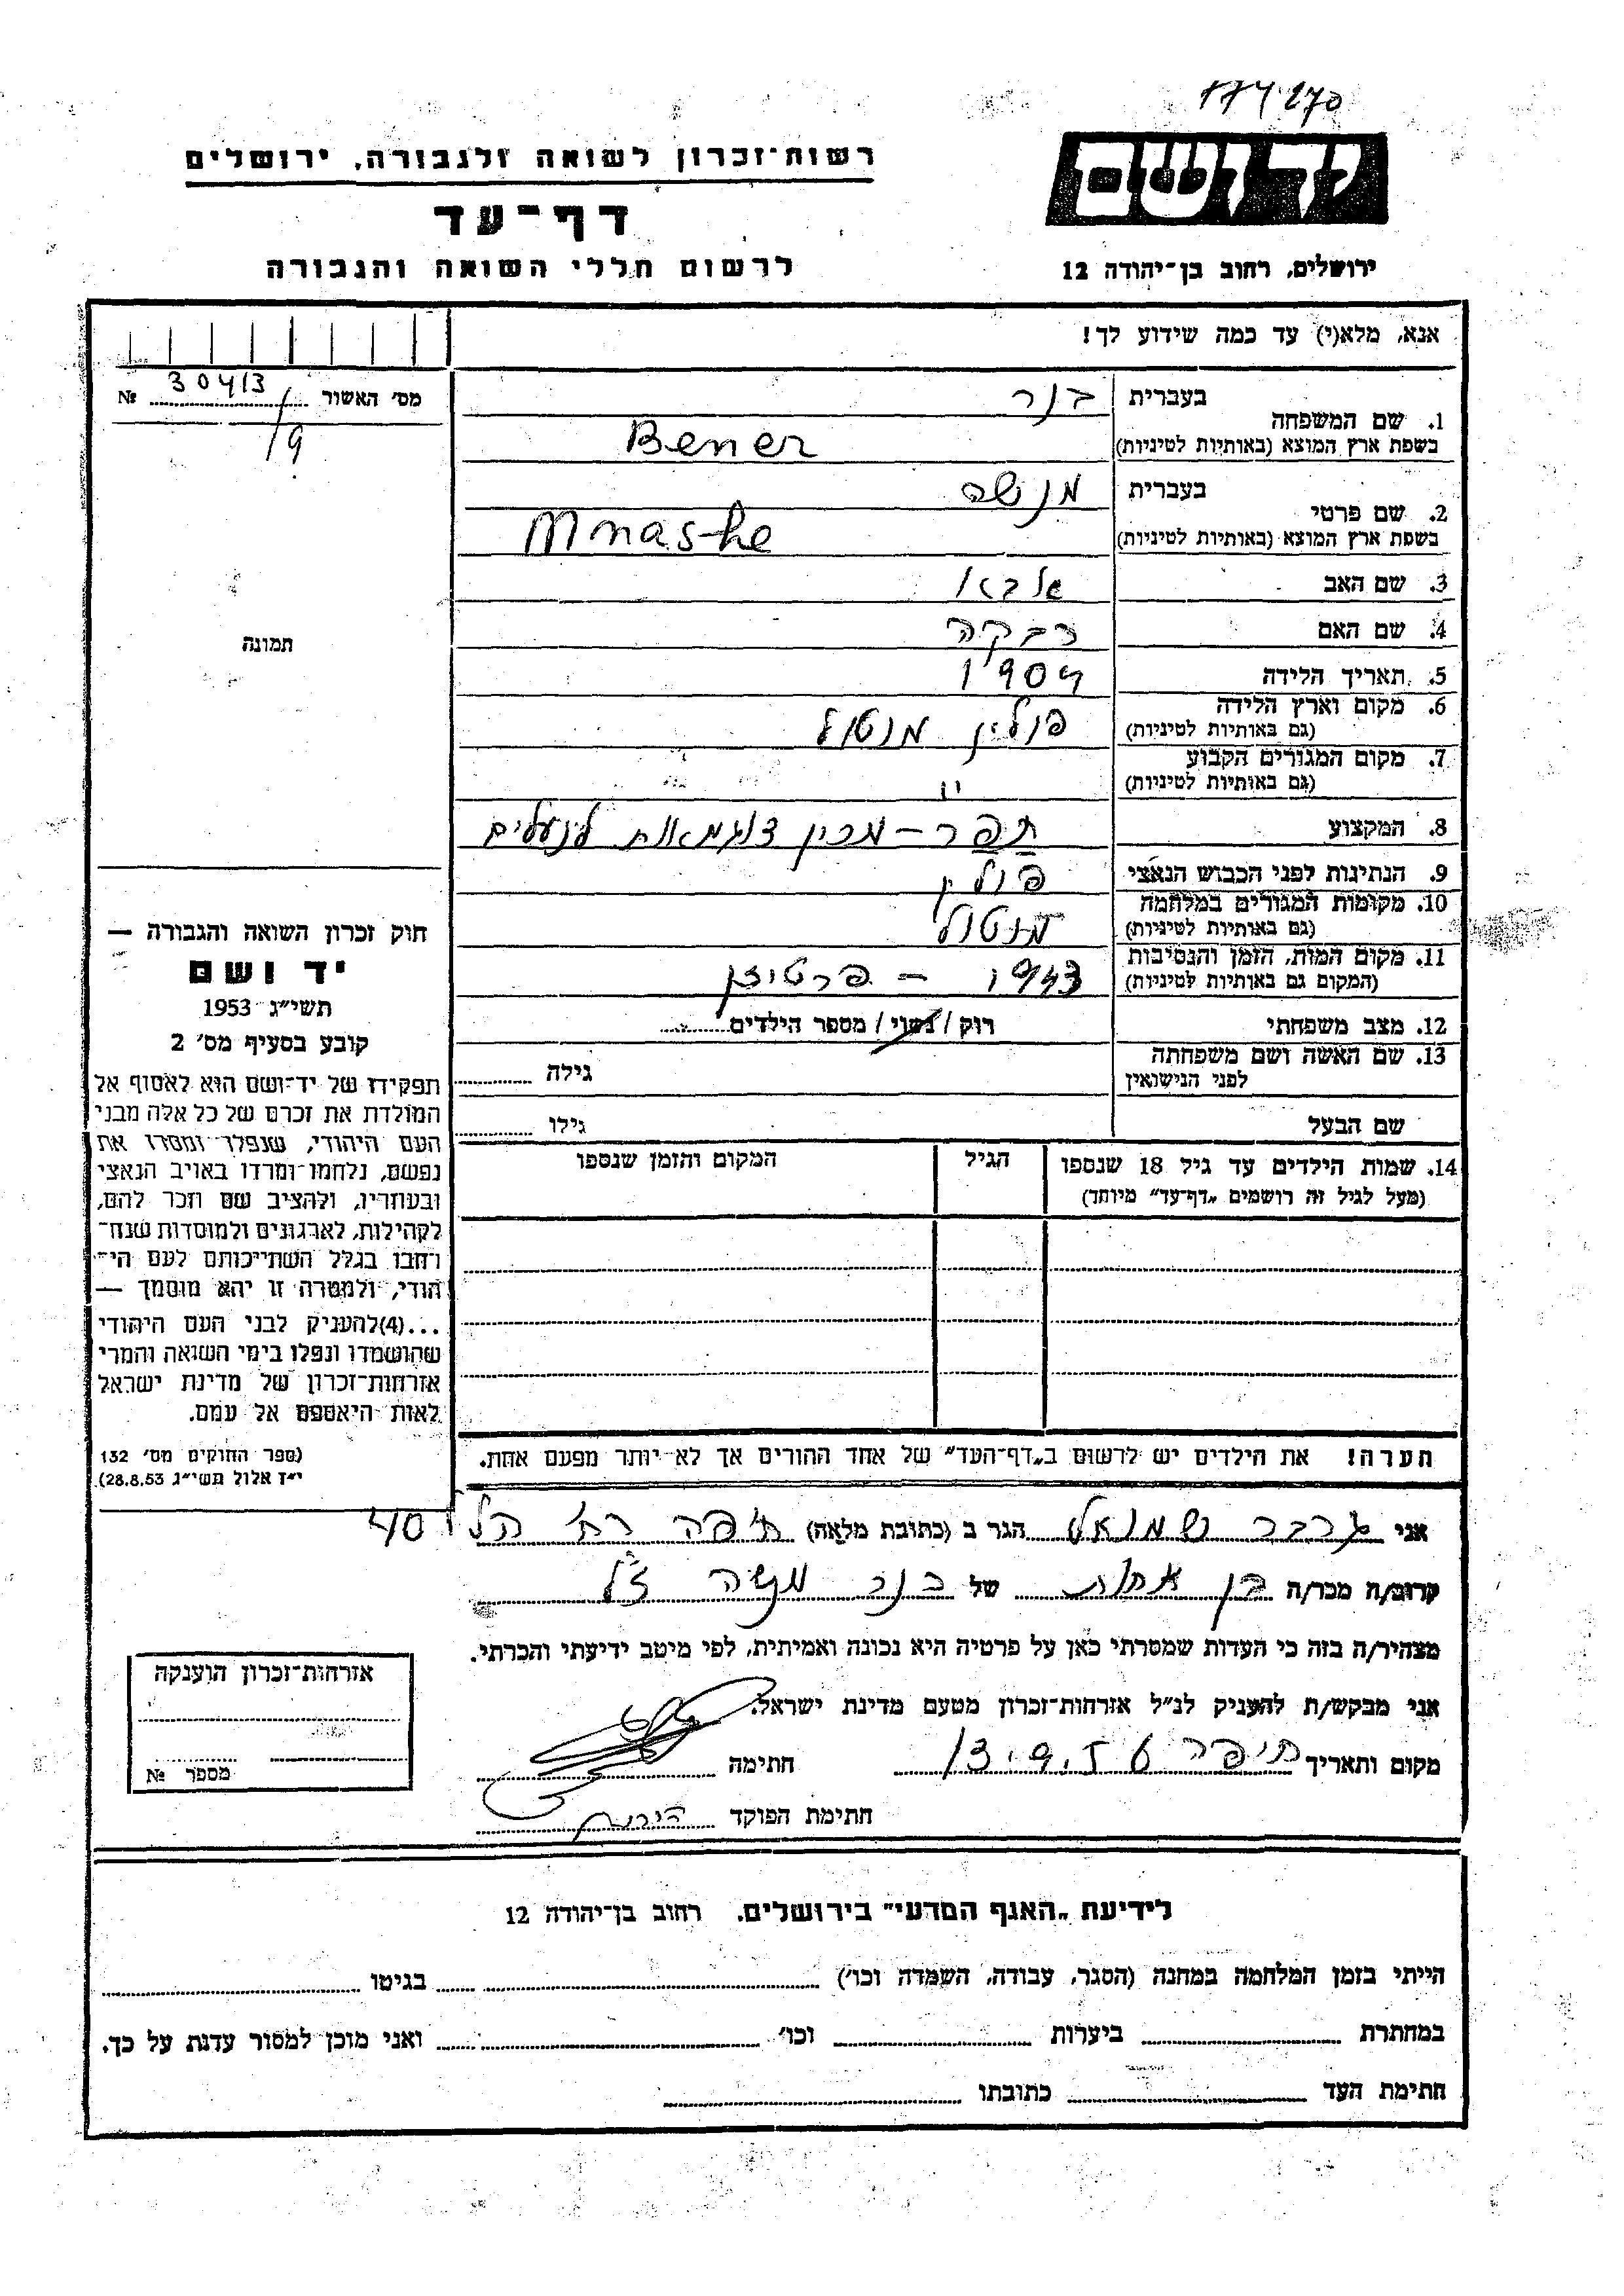 174270
רשות־זכרון לשואה ולגבורה, ירושלים
יד ושם
דף־עד
לרשום חללי השואה והגבורה
ירושלים, רחוב בן־יהודה 12
אנא, מלא(י) עד כמה שידוע לך!
מס׳ האשור 30413 №
19
תמונה
1. שם המשפחה בעברית בנר
בשפת ארץ המוצא (באותיות לטיניות) Bener
2. שם פרטי בעברית מנשה
בשפת ארץ המוצא (באותיות לטיניות) Mnashe
3. שם האב
4. שם האם רבקה
5. תאריך הלידה 1904
6. מקום וארץ הלידה (גם באותיות לטיניות) פולין מוטול
7. מקום המגורים הקבוע (גם באותיות לטיניות) "
8. המקצוע תפר – מכין דוגמאות לנעלים
9. הנתינות לפני הכבוש הנאצי פולין
10. מקומות המגורים במלחמה (גם באותיות לטיניות) מוטול
11. מקום המות, הזמן והנסיבות (המקום גם באותיות לטיניות) 1943 – פרטיזן
12. מצב משפחתי רוק / נשוי / מספר הילדים
13. שם האשה ושם משפחתה לפני הנישואין גילה
שם הבעל גילו
14. שמות הילדים עד גיל 18 שנספו הגיל המקום והזמן שנספו
(מעל לגיל זה רושמים „דף־עד” מיוחד)
חוק זכרון השואה והגבורה —
יד ושם
תשי״ג 1953
קובע בסעיף מס׳ 2
תפקידו של יד־ושם הוא לאסוף אל
המולדת את זכרם של כל אלה מבני
העם היהודי, שנפלו ומסרו את
נפשם, נלחמו ומרדו באויב הנאצי
ובעוזריו, ולהציב שם וזכר להם,
לקהילות, לארגונים ולמוסדות שנח־
רבו בגלל השתייכותם לעם הי־
הודי, ולמטרה זו יהא מוסמך —
...(4)להעניק לבני העם היהודי
שהושמדו ונפלו בימי השואה והמרי
אזרחות־זכרון של מדינת ישראל
לאות היאספם אל עמם.
(ספר החוקים מס׳ 132
י״ז אלול תשי״ג 28.8.53)
הערה! את הילדים יש לרשום ב„דף־העד” של אחד ההורים אך לא יותר מפעם אחת.
אני גרבר שמואל הגר ב (כתובת מלאה) חיפה רח׳ 40
קרוב/ה מכר/ה בן אחות של בנר מנשה ז״ל
מצהיר/ה בזה כי העדות שמסרתי כאן על פרטיה היא נכונה ואמיתית, לפי מיטב ידיעתי והכרתי.
אני מבקש/ת להעניק לנ״ל אזרחות־זכרון מטעם מדינת ישראל.
מקום ותאריך חיפה חתימה
חתימת הפוקד
אזרחות־זכרון הוענקה
מספר №
לידיעת „האגף המדעי” בירושלים, רחוב בן־יהודה 12
הייתי בזמן המלחמה במחנה (הסגר, עבודה, השמדה וכו׳) בגיטו
במחתרת ביערות וכו׳ ואני מוכן למסור עדות על כך.
חתימת העד כתובתו